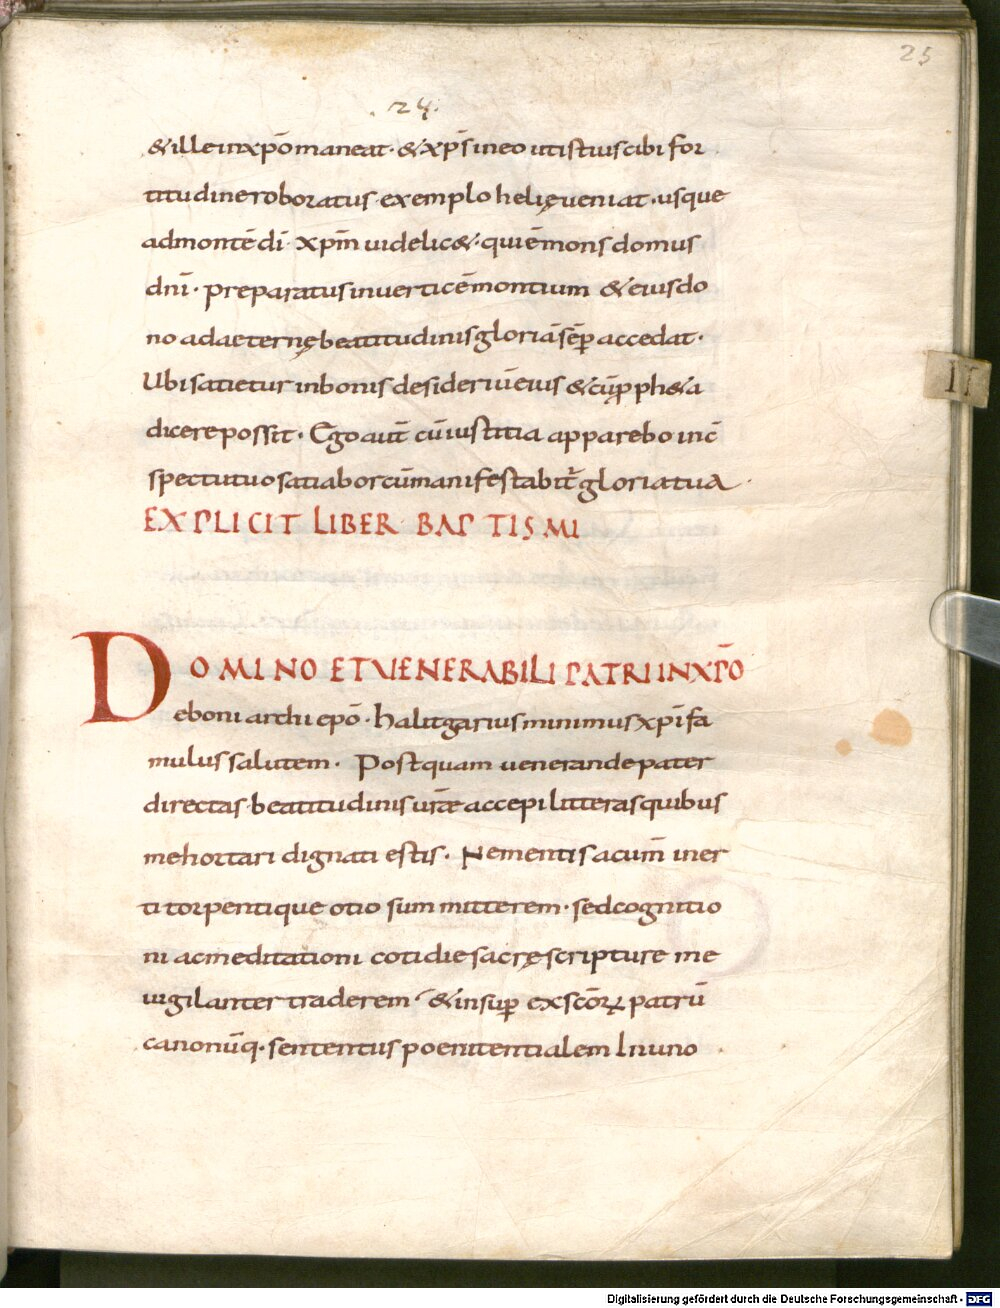 25
24.
&ille inxp̄o maneat · & xp̄s ineo ut istius cibi for
titudine roboratus exemplo helię ueniat · usque
admontē dī · xp̄m uidelic& · qui ē mons domus
dnī · preparatus inuerticē montium & eius do
no ad aeternę beatitudinis gloriā sēp accedat ·
Ubi satietur inbonis desideriū eius & cū p̄ph&a
dicere possit · Ego aut̄ cū iustitia apparebo inc̄
spectu tuo satiabor cū manifestabit̄ gloria tua ·
EXPLICIT LIBER BAPTISMI
DOMINO ET VENERABILI PATRI INXP̄O
eboni archiep̄o · halitgarius minimus xp̄i fa
mulus salutem · Postquam uenerande pater
directas beatitudinis ur̄ae accepi litteras quibus
me hortari dignati estis · Ne mentis acum̄ iner
ti torpentique otio summitterem · sed cognitio
ni ac meditationi cotidie sacrę scripture me
uigilanter traderem · & insup̄ ex sc̄orꝝ patrū
canonūq· sententiis poenitentialem Inuno
II
Digitalisierung gefördert durch die Deutsche Forschungsgemeinschaft - DFG